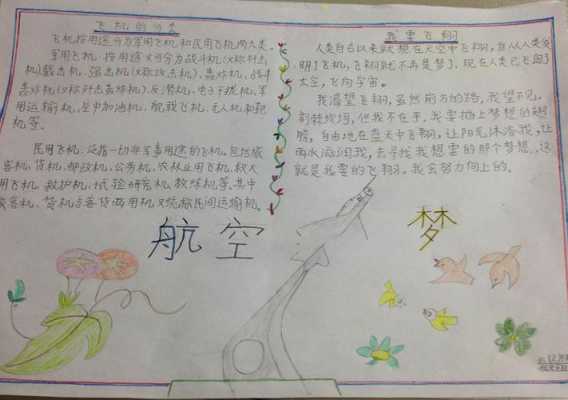 飞机的分类
飞机按用途分为军用飞机和民用飞机两大类。
军用飞机,按用途又可分为战斗机(又称歼击
机)截击机、强击机(又称攻击机)、轰炸机、战斗
轰炸机(又称歼击轰炸机)、反潜机、电子干扰机、军
用运输机、空中加油机、舰载飞机、无人机和靶
机等。
民用飞机,泛指一切非军事用途的飞机,包括旅
客机、货机、邮政机、公务机、农林业用飞机、救火
用飞机、救护机、试验研究机、教练机等。其中
旅客机、货机与客货两用机又统称民间运输机。
我要飞翔
人类自古以来就想在天空中飞翔,自从人类发
明了飞机,飞翔就不再是梦了。现在人类已飞向了
太空,飞向宇宙。
我渴望飞翔,虽然前方的路,我望不见,
荆棘坎坷,但我不在乎,我要插上梦想的翅
膀,自由地在蓝天中飞翔,让阳光沐浴我,让
雨水滋润我,去寻找我想要的那个梦想。这
就是我要的飞翔。我会努力向上的。
航空
梦